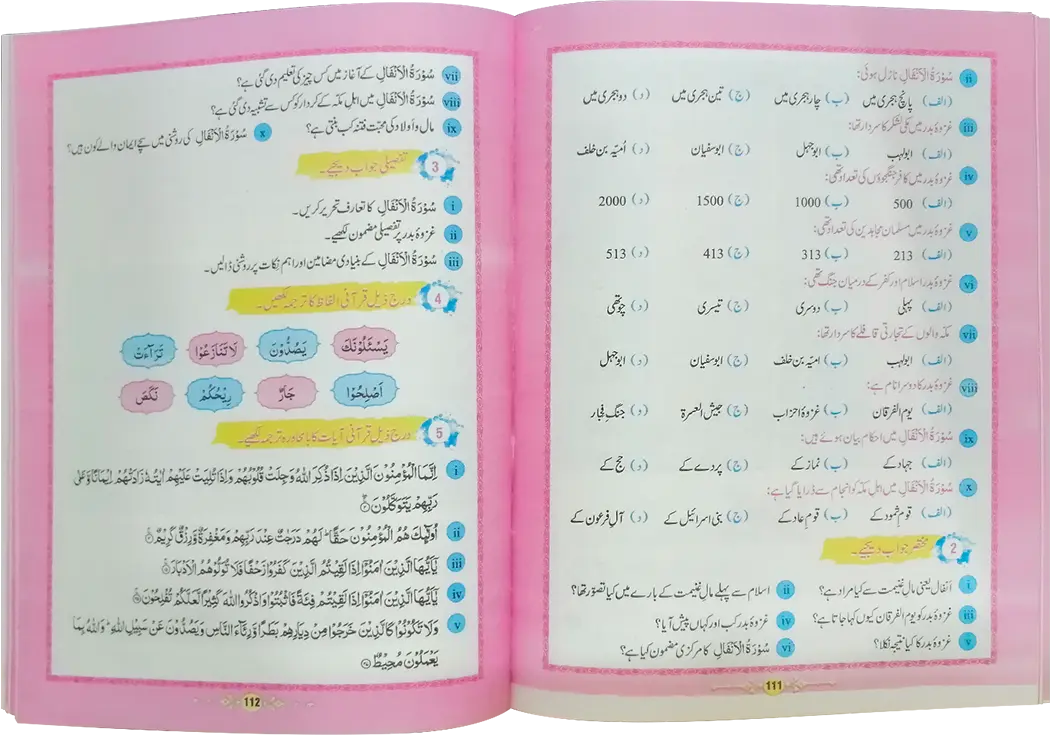 ii سُوْرَةُ الْاَنْفَالِ نازل ہوئی:
(الف) پانچ ہجری میں (ب) چار ہجری میں (ج) تین ہجری میں (د) دو ہجری میں
iii غزوۂ بدر میں مکی لشکر کا سردار تھا:
(الف) ابولہب (ب) ابوجہل (ج) ابوسفیان (د) اُمیّہ بن خلف
iv غزوۂ بدر میں کافر جنگجوؤں کی تعداد تھی:
(الف) 500 (ب) 1000 (ج) 1500 (د) 2000
v غزوۂ بدر میں مسلمان مجاہدین کی تعداد تھی:
(الف) 213 (ب) 313 (ج) 413 (د) 513
vi غزوۂ بدر اسلام اور کفر کے درمیان جنگ تھی:
(الف) پہلی (ب) دوسری (ج) تیسری (د) چوتھی
vii مکہ والوں کے تجارتی قافلے کا سردار تھا:
(الف) ابولہب (ب) امیّہ بن خلف (ج) ابوسفیان (د) ابوجہل
viii غزوۂ بدر کا دوسرا نام ہے:
(الف) یوم الفرقان (ب) غزوۂ احزاب (ج) جیش العسرۃ (د) جنگِ فجار
ix سُوْرَةُ الْاَنْفَالِ میں احکام بیان ہوئے ہیں:
(الف) جہاد کے (ب) نماز کے (ج) پردے کے (د) حج کے
x سُوْرَةُ الْاَنْفَالِ میں اہلِ مکہ کو انجام سے ڈرایا گیا ہے:
(الف) قومِ ثمود کے (ب) قومِ عاد کے (ج) بنی اسرائیل کے (د) آلِ فرعون کے
2 مختصر جواب دیجیے۔
i اَنفال یعنی مالِ غنیمت سے کیا مراد ہے؟ ii اسلام سے پہلے مالِ غنیمت کے بارے میں کیا تصوّر تھا؟
iii غزوۂ بدر کو یوم الفرقان کیوں کہا جاتا ہے؟ iv غزوۂ بدر کب اور کہاں پیش آیا؟
v غزوۂ بدر کا کیا نتیجہ نکلا؟ vi سُوْرَةُ الْاَنْفَالِ کا مرکزی مضمون کیا ہے؟
111
vii سُوْرَةُ الْاَنْفَالِ کے آغاز میں کس چیز کی تعلیم دی گئی ہے؟
viii سُوْرَةُ الْاَنْفَالِ میں اہلِ مکہ کے کردار کو کس سے تشبیہ دی گئی ہے؟
ix مال و اولاد کی محبّت فتنہ کب بنتی ہے؟ x سُوْرَةُ الْاَنْفَالِ کی روشنی میں سچے ایمان والے کون ہیں؟
3 تفصیلی جواب دیجیے۔
i سُوْرَةُ الْاَنْفَالِ کا تعارف تحریر کریں۔
ii غزوۂ بدر پر تفصیلی مضمون لکھیے۔
iii سُوْرَةُ الْاَنْفَالِ کے بنیادی مضامین اور اہم نکات پر روشنی ڈالیں۔
4 درج ذیل قرآنی الفاظ کا ترجمہ لکھیں۔
يَسْـَٔلُوْنَكَ يَصُدُّوْنَ لَا تَنَازَعُوْا تَرَآءَتْ
اَصْلِحُوْا جَارٌ رِيْحُكُمْ نَكَصَ
5 درج ذیل قرآنی آیات کا بامحاورہ ترجمہ لکھیے۔
i اِنَّمَا الْمُؤْمِنُوْنَ الَّذِيْنَ اِذَا ذُكِرَ اللهُ وَجِلَتْ قُلُوْبُهُمْ وَاِذَا تُلِيَتْ عَلَيْهِمْ اٰيٰتُهٗ زَادَتْهُمْ اِيْمَانًا وَّعَلٰى
رَبِّهِمْ يَتَوَكَّلُوْنَ
ii اُولٰٓئِكَ هُمُ الْمُؤْمِنُوْنَ حَقًّا ؕ لَهُمْ دَرَجٰتٌ عِنْدَ رَبِّهِمْ وَمَغْفِرَةٌ وَّرِزْقٌ كَرِيْمٌ
iii يٰٓاَيُّهَا الَّذِيْنَ اٰمَنُوْٓا اِذَا لَقِيْتُمُ الَّذِيْنَ كَفَرُوْا زَحْفًا فَلَا تُوَلُّوْهُمُ الْاَدْبَارَ
iv يٰٓاَيُّهَا الَّذِيْنَ اٰمَنُوْٓا اِذَا لَقِيْتُمْ فِئَةً فَاثْبُتُوْا وَاذْكُرُوا اللهَ كَثِيْرًا لَّعَلَّكُمْ تُفْلِحُوْنَ
v وَلَا تَكُوْنُوْا كَالَّذِيْنَ خَرَجُوْا مِنْ دِيَارِهِمْ بَطَرًا وَّرِئَآءَ النَّاسِ وَيَصُدُّوْنَ عَنْ سَبِيْلِ اللهِ ؕ وَاللهُ بِمَا
يَعْمَلُوْنَ مُحِيْطٌ
112